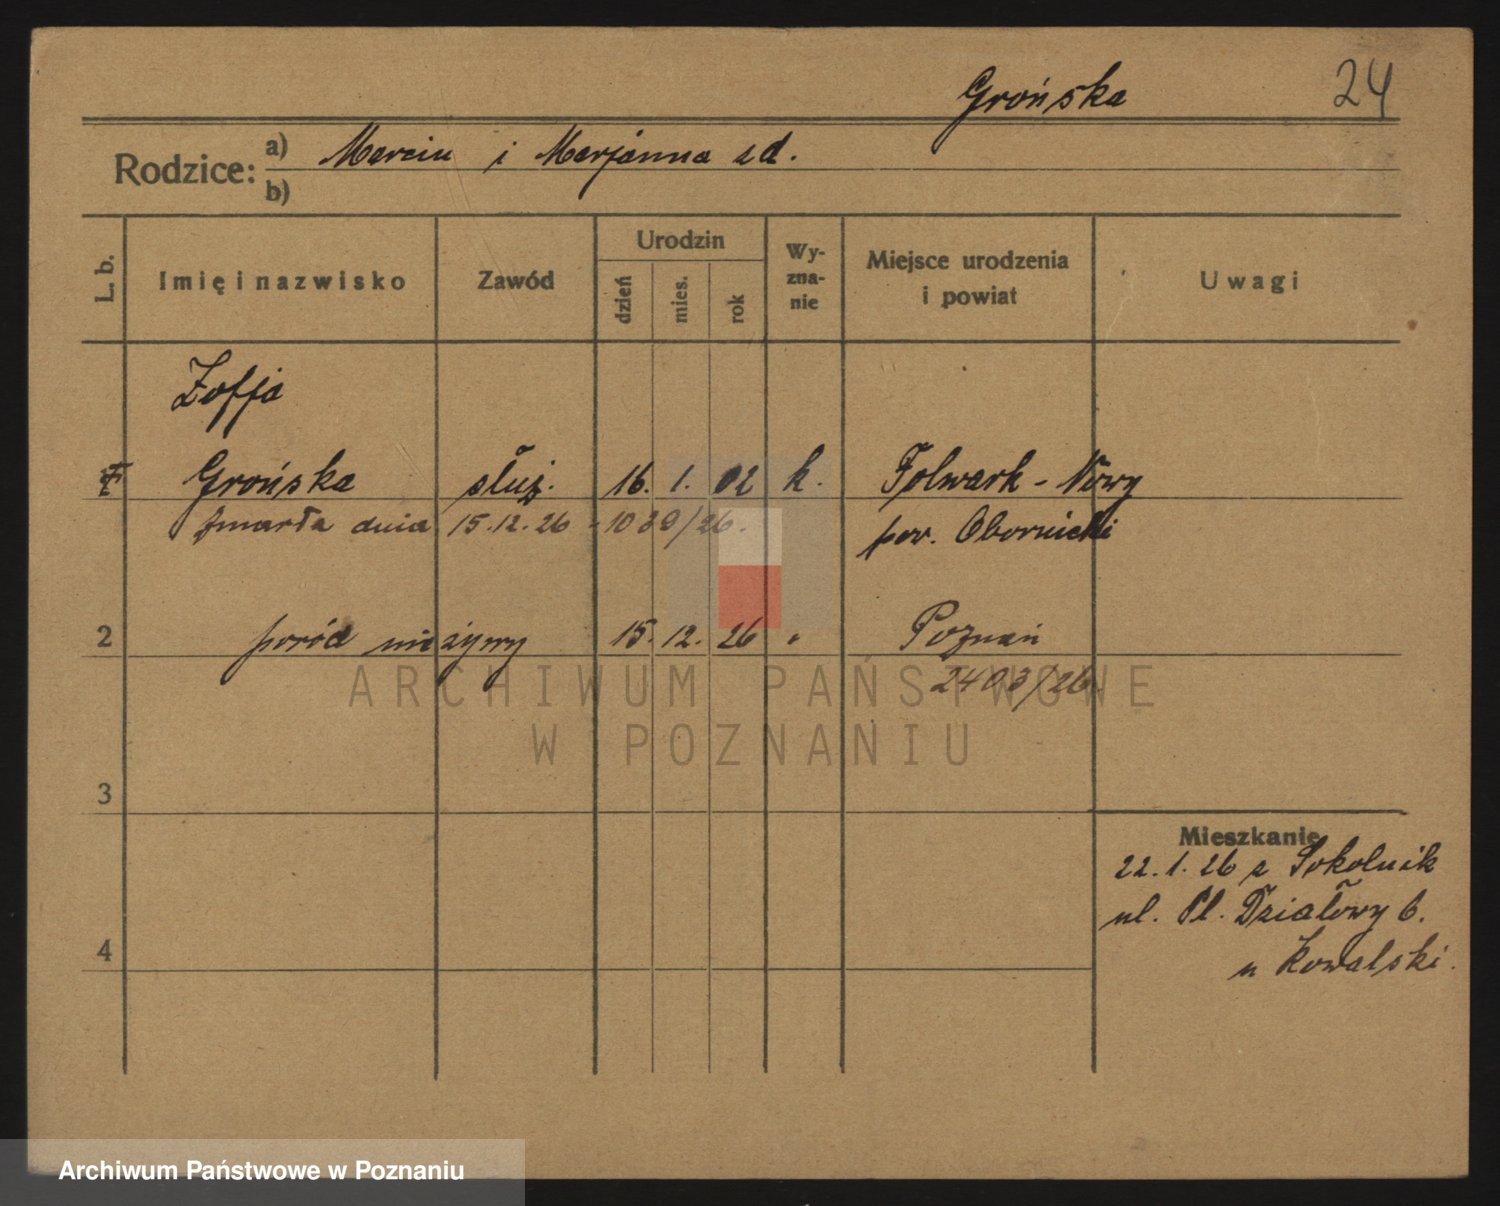 Grońska 24
Rodzice: a) Marcin i Marjanna zd.
b)
L. b. Imię i nazwisko Zawód Urodzin dzień mies. rok Wyznanie Miejsce urodzenia i powiat Uwagi
Zofja
Grońska służ. 16. 1. 02 k. Folwark - Nowy
zmarła dnia 15.12.26 - 1039/26. pow. Obornicki
2 poród nieżywy 15. 12. 26 " Poznań
2403/26.
ARCHIWUM PAŃSTWOWE
W POZNANIU
3
Mieszkanie
22.1.26 z Sokolnik
ul. Pl. Działowy 6.
4
u Kowalski.
Archiwum Państwowe w Poznaniu